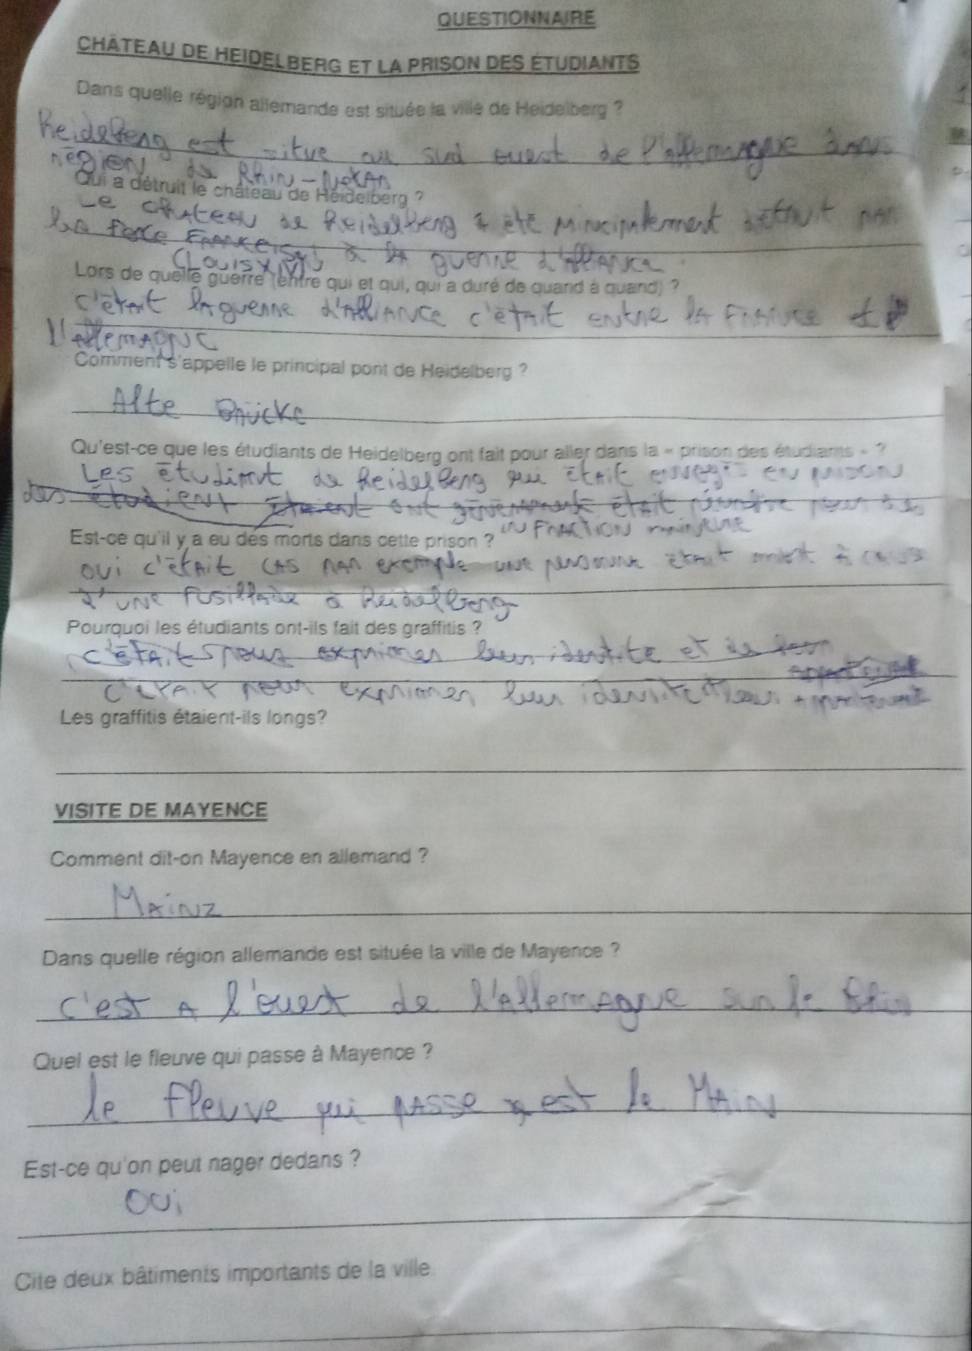 QUESTIONNAIRE
CHÂTEAU DE HEIDELBERG ET LA PRISON DES ÉTUDIANTS
Dans quelle région allemande est située la ville de Heidelberg ?
Heidelberg est situe au sud ouest de l'allemagne dans
région du Rhin-Nekan
Qui a détruit le château de Heidelberg ?
Le chateau de Heidelberg a été principalement détruit par
la force
(Louis XIV) à la guerre d'alliance
Lors de quelle guerre (entre qui et qui, qui a duré de quand à quand) ?
c'était la guerre d'alliance c'était entre la France et
l'allemagne
Comment s'appelle le principal pont de Heidelberg ?
Alte Brücke
Qu'est-ce que les étudiants de Heidelberg ont fait pour aller dans la « prison des étudiants » ?
Les étudiant de Heidelberg qui était en prison
des étudient était pour des
infraction mineure
Est-ce qu'il y a eu des morts dans cette prison ?
oui c'était cas par exemple une personne était mort à cause
d'une fusillade a Heidelberg
Pourquoi les étudiants ont-ils fait des graffitis ?
c'était pour exprimer leur identite et
c'était pour exprimer leur identite leur
Les graffitis étaient-ils longs?
VISITE DE MAYENCE
Comment dit-on Mayence en allemand ?
Mainz
Dans quelle région allemande est située la ville de Mayence ?
c'est a l'ouest de l'Allemagne sur le Rhin
Quel est le fleuve qui passe à Mayence ?
le fleuve qui passe est le Main
Est-ce qu'on peut nager dedans ?
oui
Cite deux bâtiments importants de la ville.